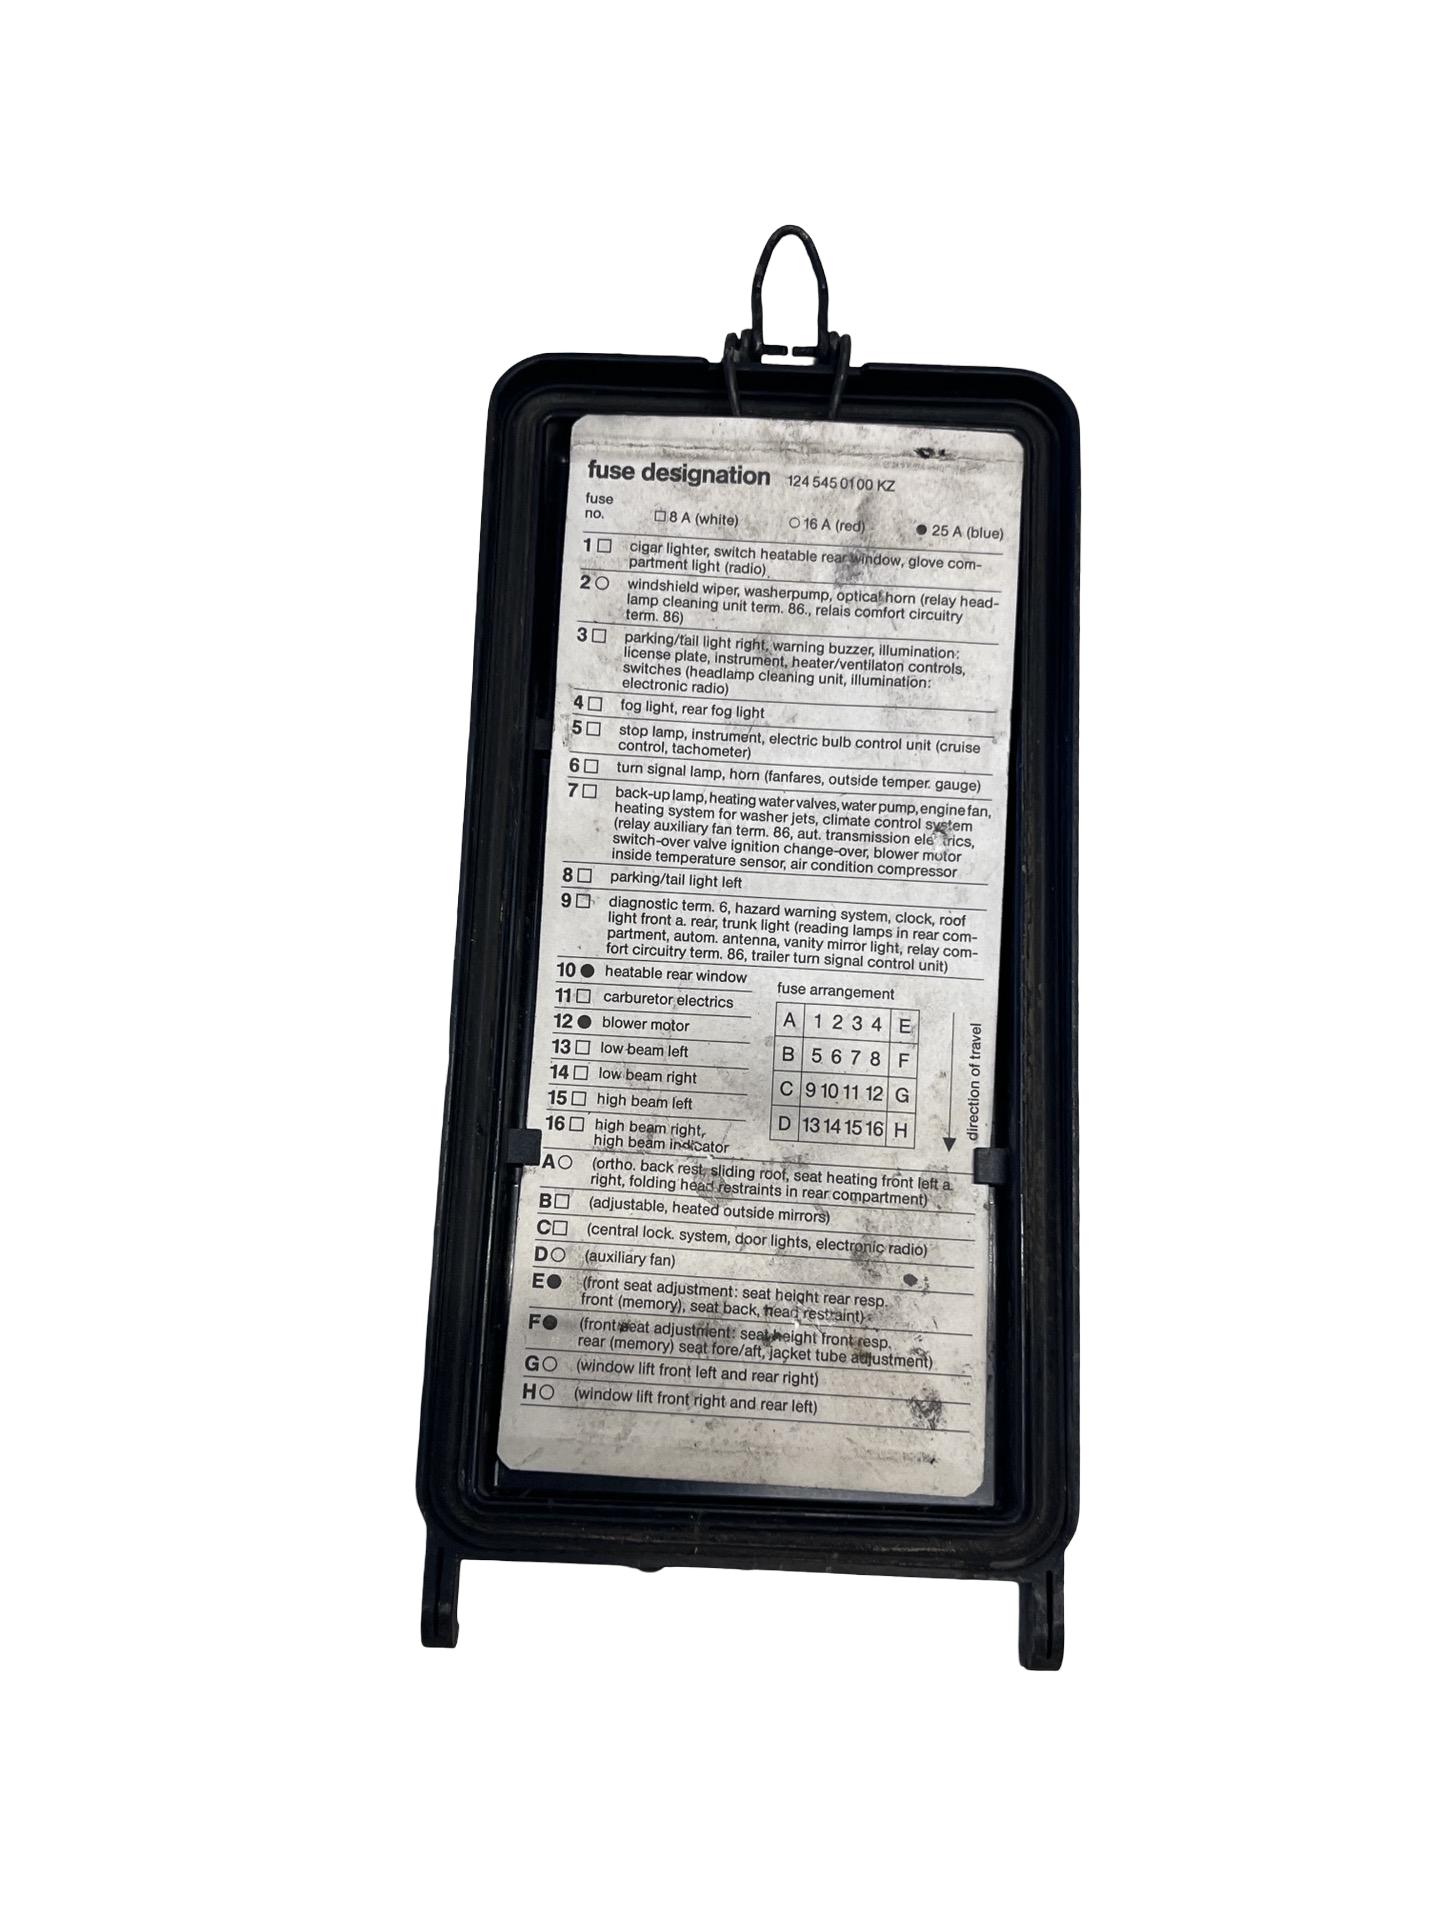 fuse designation 124 545 01 00 KZ
fuse
no. □ 8 A (white) ○ 16 A (red) ● 25 A (blue)
1 □ cigar lighter, switch heatable rear window, glove com-
partment light (radio)
2 ○ windshield wiper, washerpump, optical horn (relay head-
lamp cleaning unit term. 86., relais comfort circuitry
term. 86)
3 □ parking/tail light right, warning buzzer, illumination:
license plate, instrument, heater/ventilaton controls,
switches (headlamp cleaning unit, illumination:
electronic radio)
4 □ fog light, rear fog light
5 □ stop lamp, instrument, electric bulb control unit (cruise
control, tachometer)
6 □ turn signal lamp, horn (fanfares, outside temper. gauge)
7 □ back-up lamp, heating water valves, water pump, engine fan,
heating system for washer jets, climate control system
(relay auxiliary fan term. 86, aut. transmission electrics,
switch-over valve ignition change-over, blower motor
inside temperature sensor, air condition compressor
8 □ parking/tail light left
9 □ diagnostic term. 6, hazard warning system, clock, roof
light front a. rear, trunk light (reading lamps in rear com-
partment, autom. antenna, vanity mirror light, relay com-
fort circuitry term. 86, trailer turn signal control unit)
10 ● heatable rear window
11 □ carburetor electrics
12 ● blower motor
13 □ low beam left
14 □ low beam right
15 □ high beam left
16 □ high beam right,
high beam indicator
fuse arrangement
A 1 2 3 4 E
B 5 6 7 8 F
C 9 10 11 12 G
D 13 14 15 16 H
direction of travel
A ○ (ortho. back rest, sliding roof, seat heating front left a.
right, folding head restraints in rear compartment)
B □ (adjustable, heated outside mirrors)
C □ (central lock. system, door lights, electronic radio)
D ○ (auxiliary fan)
E ● (front seat adjustment: seat height rear resp.
front (memory), seat back, head restraint)
F ● (front seat adjustment: seat height front resp.
rear (memory) seat fore/aft, jacket tube adjustment)
G ○ (window lift front left and rear right)
H ○ (window lift front right and rear left)